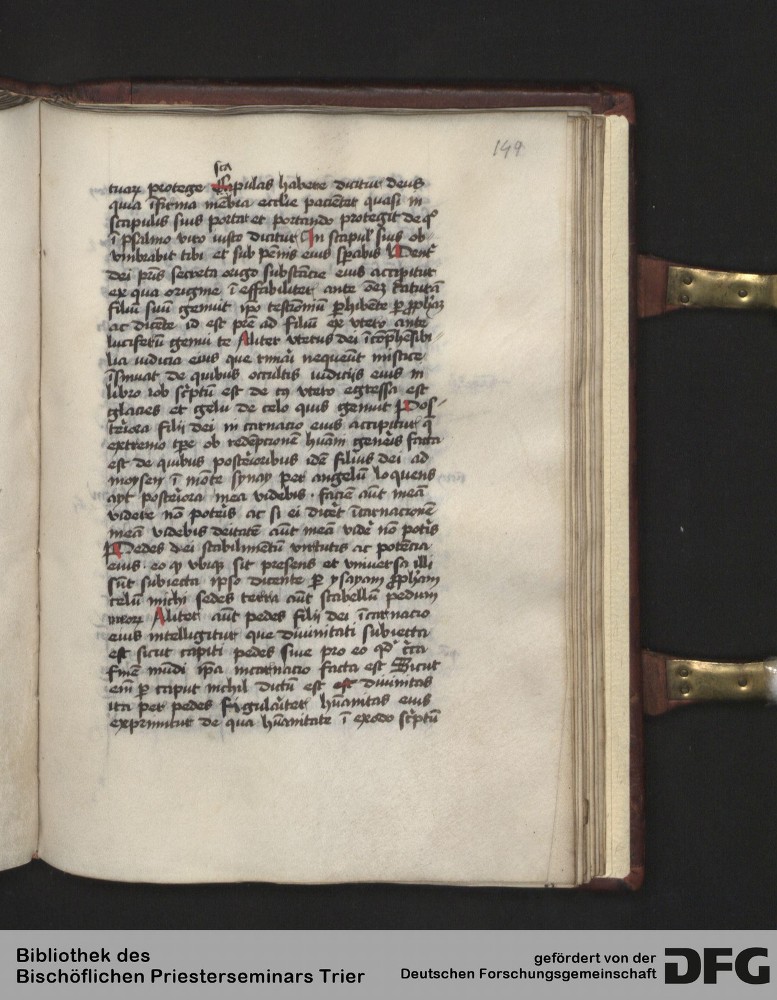 149
sca
tuaꝝ protege Scapulas habere dicitur deus
quia īfirma mēbra eccl̄ie pacient̄ quasi in
scapulis suis portat et portando protegit de qͦ
ī psalmo viro iusto dicitur In scapul̄ suis ob
umbrabit tibi et sub pēnis eius sp̄abis Vent̄
dei pr̄is secreta origo substācie eius accipitur
ex qua origine īeffabiliter ante oēꝫ c̄aturā
filiū suū genuit ip̄o testimōniū ꝑhibēte ꝑ ꝓph̄aꝫ
ac dicēte id est pr̄e ad filiū ex vtero ante
luciferū genui te Aliter vterus dei īcōp̄hēsibi
lia iudicia eius que rimāri nequeūt mistice
īsinuat de quibus occultis iudicijs eius in
libro iob sc̄ptū est de cꝯ vtero egressa est
glacies et gelu de celo quis genuit Pos
teriora filii dei in carnacio eius accipitur q̄
extremo tꝑe ob redēpcionē hūanī gen̄is facta
est de quibus posterioribus idē filius dei ad
moysen ī mōte synay per angelū loquens
ayt posteriora mea videbis · faciē aūt meā
videre nō poteris ac si ei dicēt īcarnacionē
meā videbis deitatē aūt meā vid̄e nō pot̄is
Pedes dei stabilimētū virtutis ac potēcia
eius · eo qꝫ vbiqꝫ sit presens et universa illi
sūt subiecta ip̄so dicente ꝑ ysayam ꝓph̄am
celū michi sedes terra aūt scabellū pedum
meoꝝ Aliter aūt pedes filii dei īcarnacio
eius intelligitur que diuinitati subiecta
est sicut capiti pedes siue pro eo qd̄ c̄ca
finē mūdi ip̄a incarnacio facta est Sicut
eni ꝑ caput nichil dictū est est diuinitas
ita per pedes singulariter hūanitas eius
exprimitur de qua hūanitate ī exodo sc̄ptū
Bibliothek des
Bischöflichen Priesterseminars Trier
gefördert von der
Deutschen Forschungsgemeinschaft
DFG